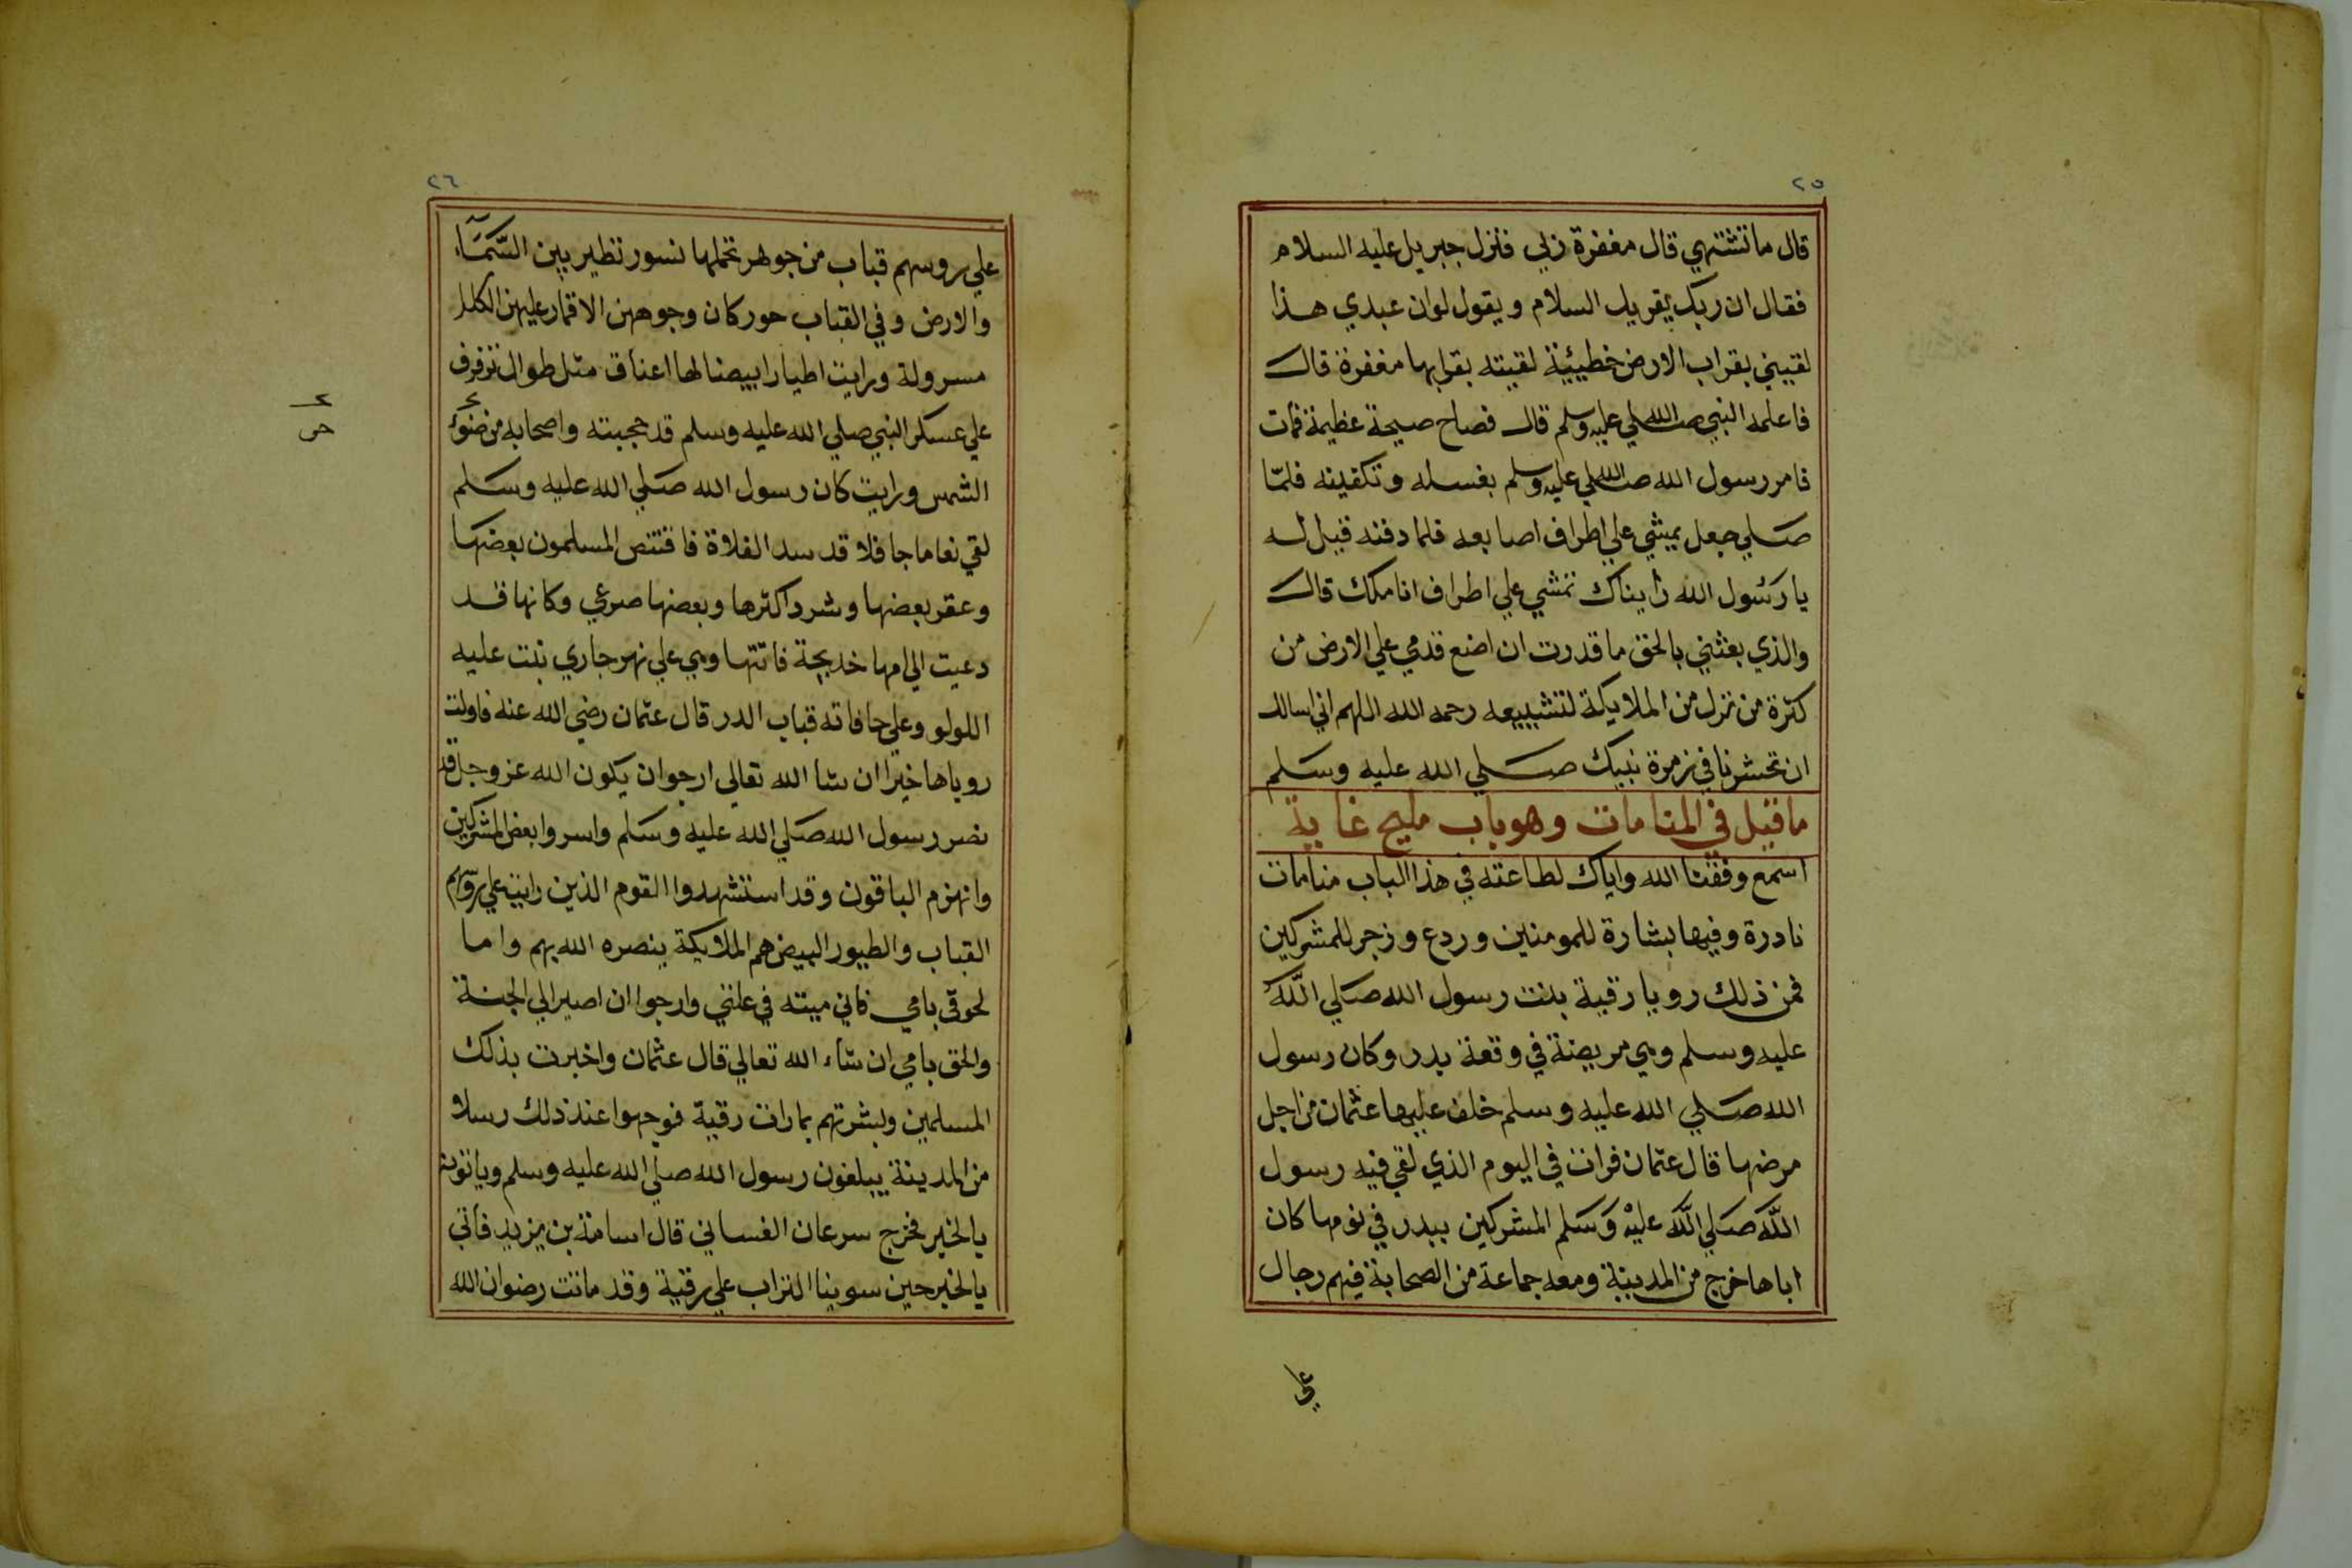 ٢٥
قال ما تشتهي قال مغفرة ربي فنزل جبريل عليه السلام
فقال ان ربك يقريك السلام ويقول لوان عبدي هذا
لقيني بقراب الارض خطيئية لقيته بقرابها مغفرة قال
فاعلمه النبي صلي الله عليه وسلم قال فصاح صيحة عظيمة فمات
فامر رسول الله صلي الله عليه وسلم بغسله وتكفينه فلمّا
صلي جعل يمشي علي اطراف اصابعه فلما دفنه قيل له
يا رسول الله رايناك تمشي علي اطراف اناملك قال
والذي بعثني بالحق ما قدرت ان اضع قدمي علي الارض من
كثرة من نزل من الملايكة لتشييعه رحمه الله اللهم اني اسالك
ان تحشرنا في زمرة نبيك صلي الله عليه وسلم
ما قيل في المنامات وهو باب مليح غاية
اسمع وفقنا الله واياك لطاعته في هذا الباب منامات
نادرة وفيها بشارة للمومنين وردع وزجر للمشركين
فمن ذلك رويا رقية بنت رسول الله صلي الله
عليه وسلم وهي مريضة في وقعة بدر وكان رسول
الله صلي الله عليه وسلم خلف عليها عثمان من اجل
مرضها قال عثمان فرات في اليوم الذي لقي فيه رسول
الله صلي الله عليه وسلم المشركين ببدر في نومها كان
اباها خرج من المدينة ومعه جماعة من الصحابة فيهم رجال
علي
٢٦
علي روسهم قباب من جوهر تحملها نسور تطير بين السّمآء
والارض وفي القباب حور كان وجوههن الاقمار عليهن الكلل
مسرولة ورايت اطيارا بيضا لها اعناق مثل طوال ترفرف
علي عسكر النبي صلي الله عليه وسلم قد حجبته واصحابه من ضوء
الشمس ورايت كان رسول الله صلي الله عليه وسلم
لقي نعاما جافلا قد سد الفلاة فاقتنص المسلمون بعضها
وعقر بعضها وشرد اكثرها وبعضها صرعي وكانها قد
دعيت الي امها خديجة فاتتها وهي علي نهر جاري نبت عليه
اللولو وعلي حافاته قباب الدر قال عثمان رضي الله عنه فاولت
روياها خيرا ان شا الله تعالي ارجوان يكون الله عز وجل قد
نصر رسول الله صلي الله عليه وسلم واسروا بعض المشركين
وانهزم الباقون وقد استشهدوا القوم الذين رايته علي روسهم
القباب والطيور البيض هم الملايكة ينصره الله بهم واما
لحوقي بامي فاني ميته في علتي وارجوا ان اصير الي الجنة
والحق بامي ان شاء الله تعالي قال عثمان واخبرت بذلك
المسلمين وبشرتهم بما رات رقية فوجهوا عند ذلك رسلا
من المدينة يبلغون رسول الله صلي الله عليه وسلم وياتون
بالخبر فخرج سرعان الغساني قال اسامة بن يزيد فاتي
بالخبر حين سوينا التراب علي رقية وقد ماتت رضوان الله